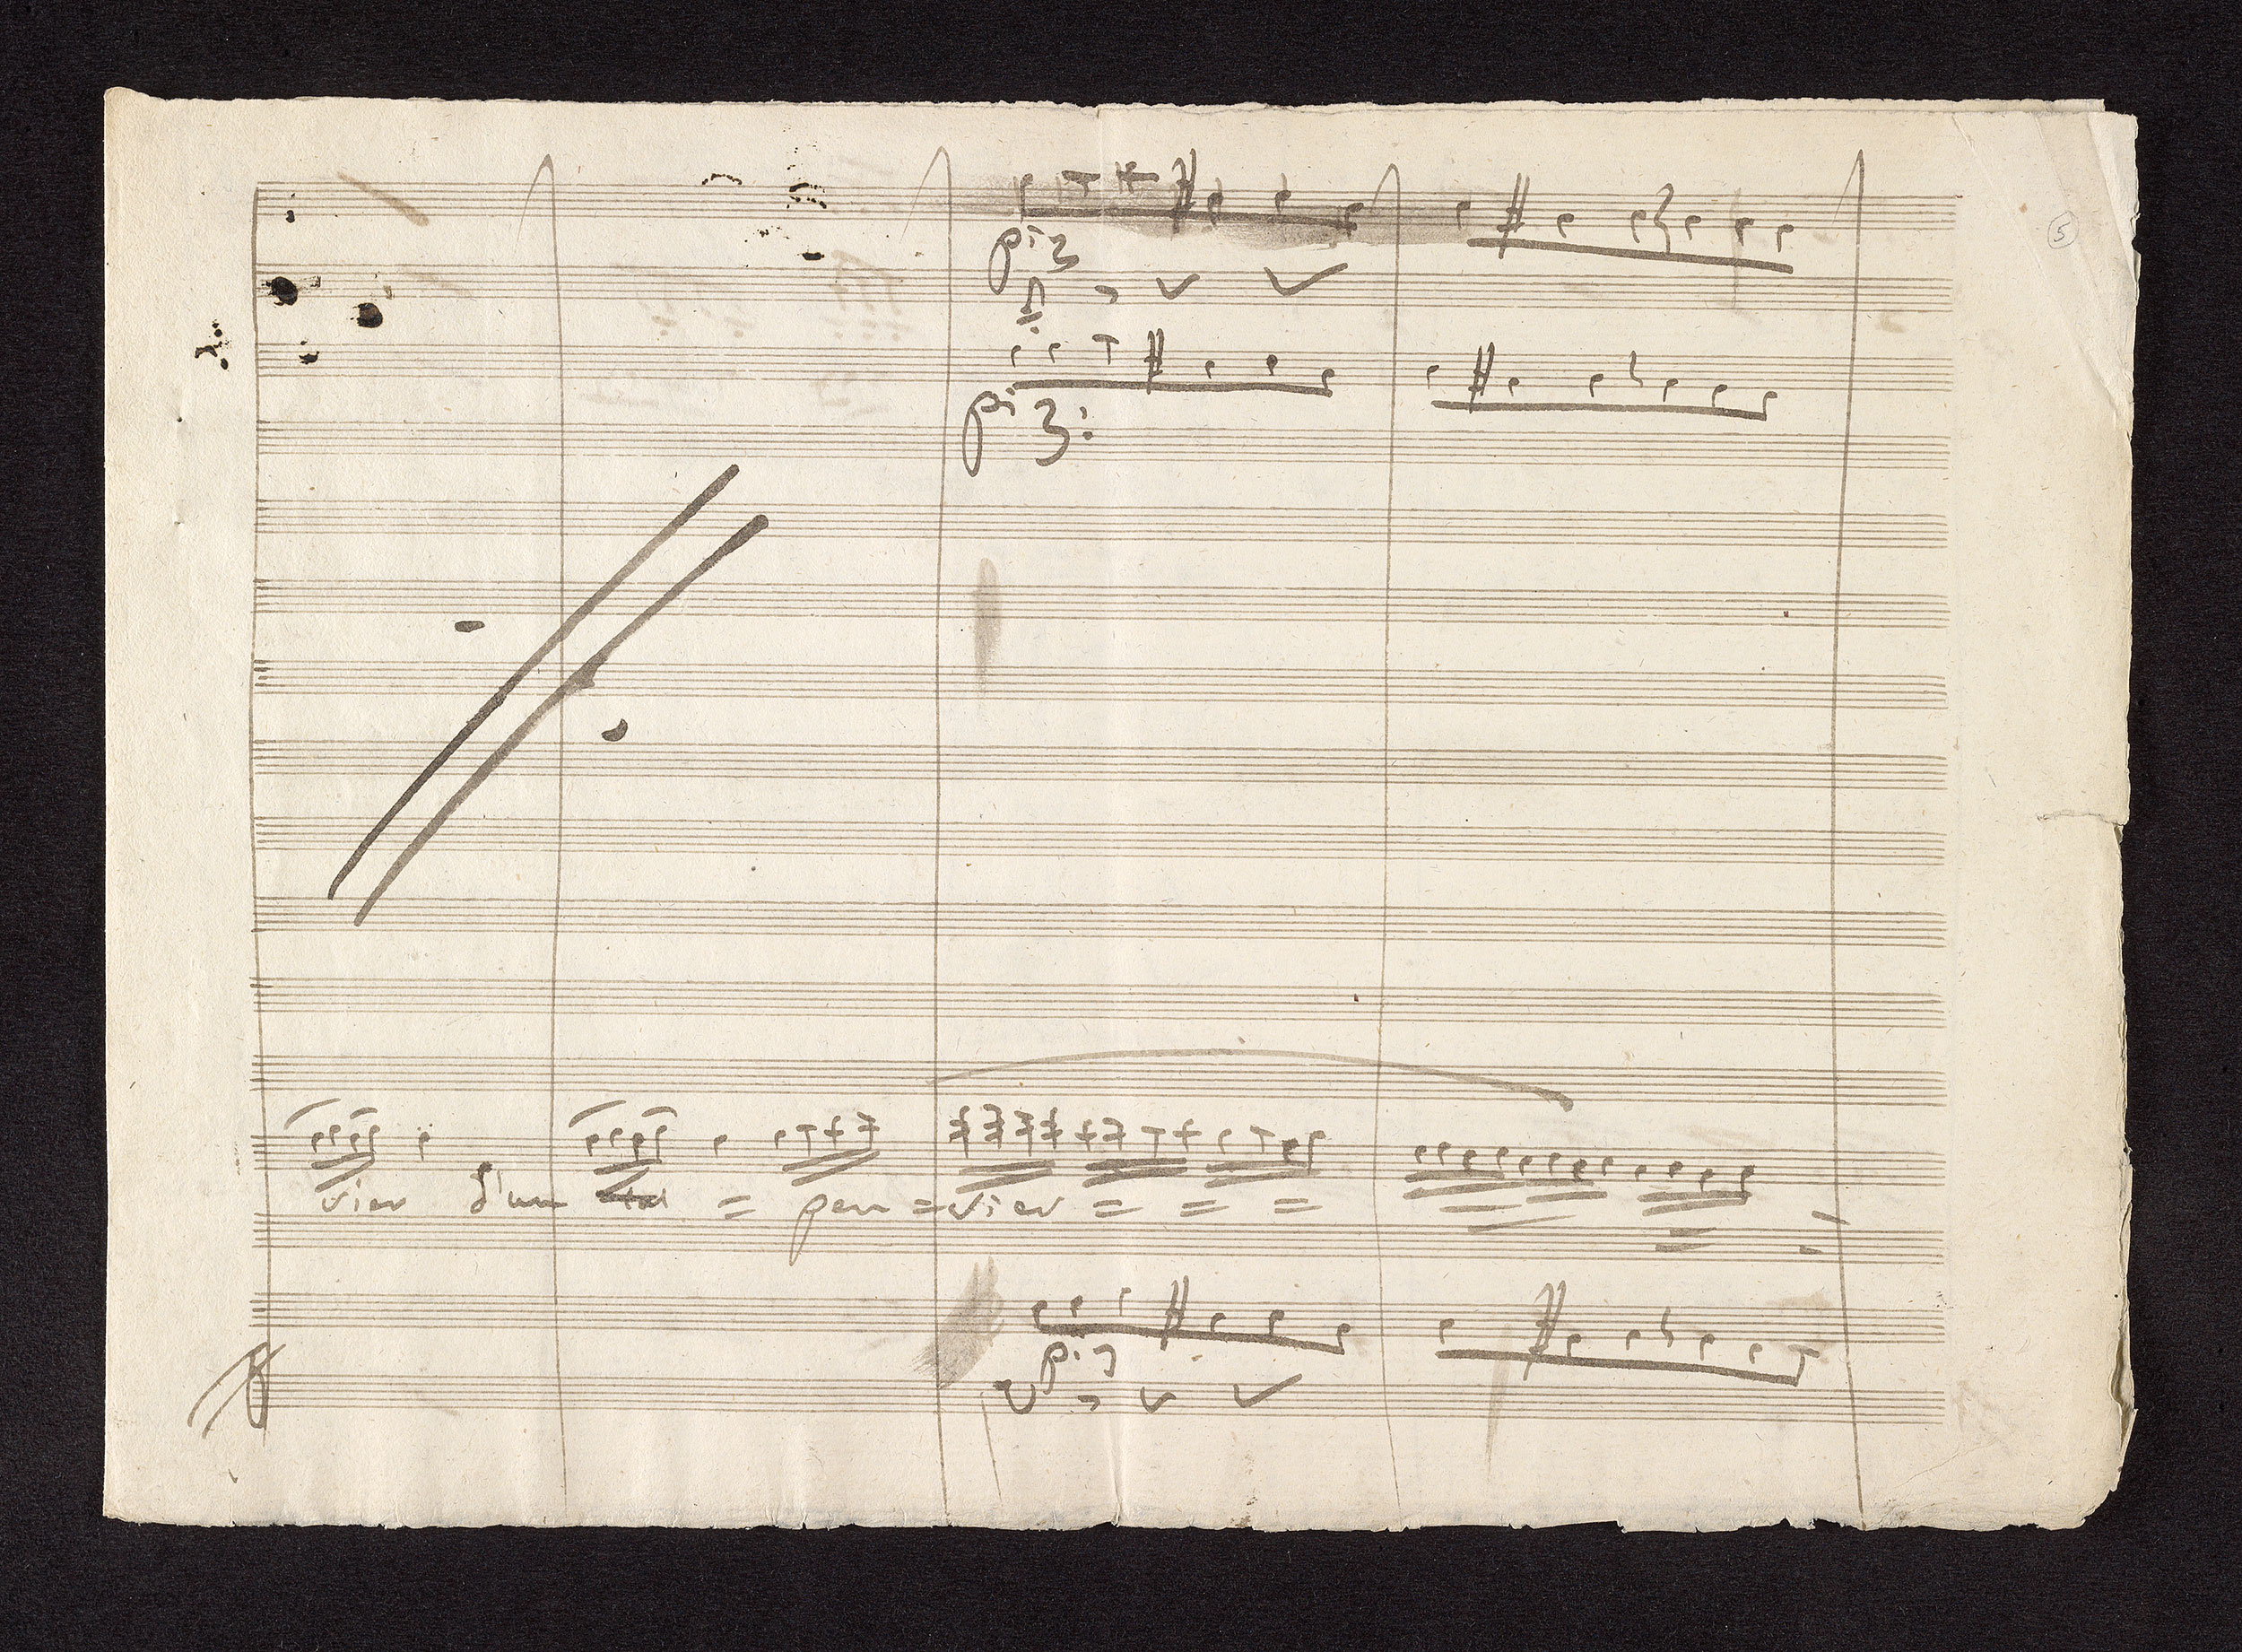 5
piz
piz:
vier d'un = pen = sier = = =
piz